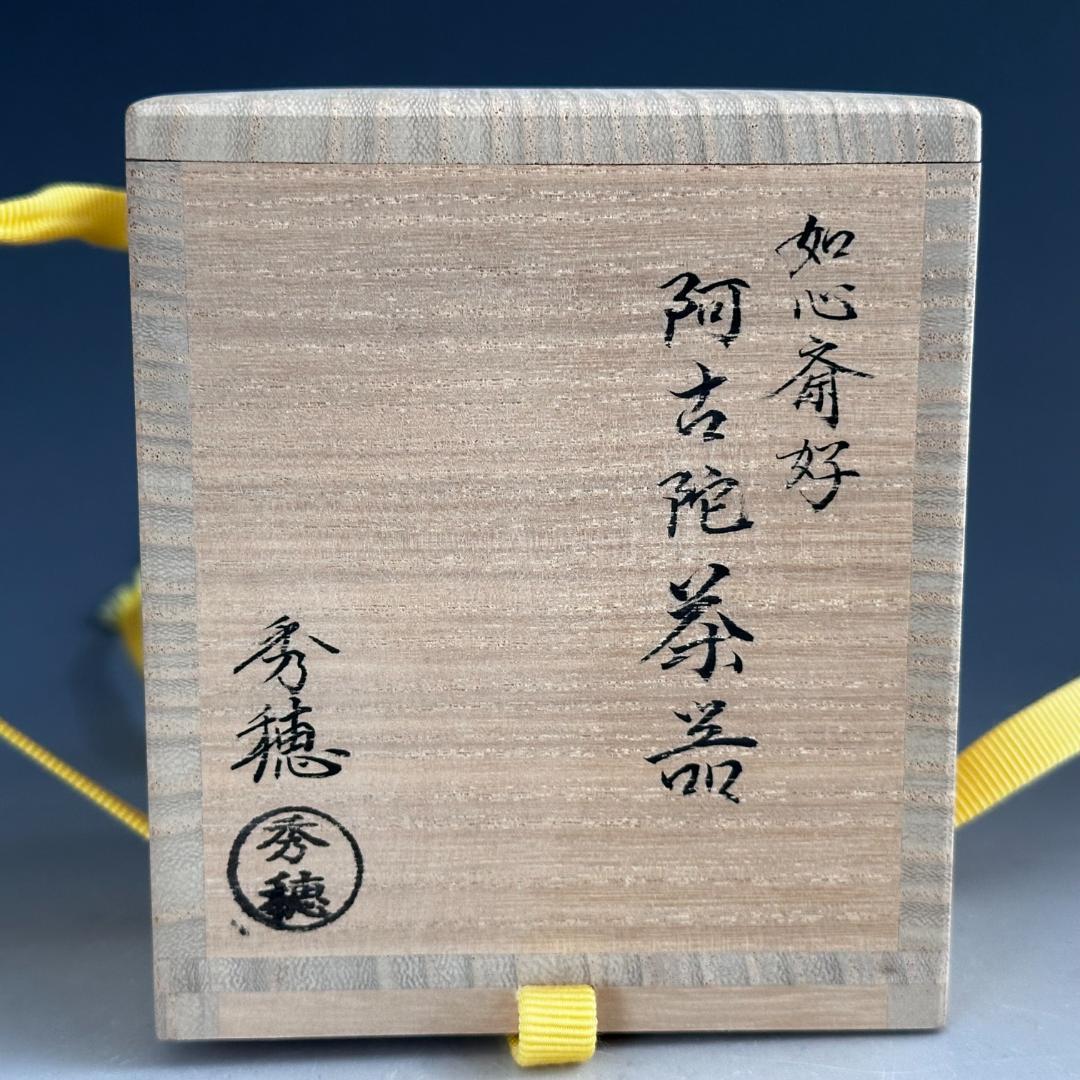 如心斎好
阿古陀茶器
秀穂
秀穂